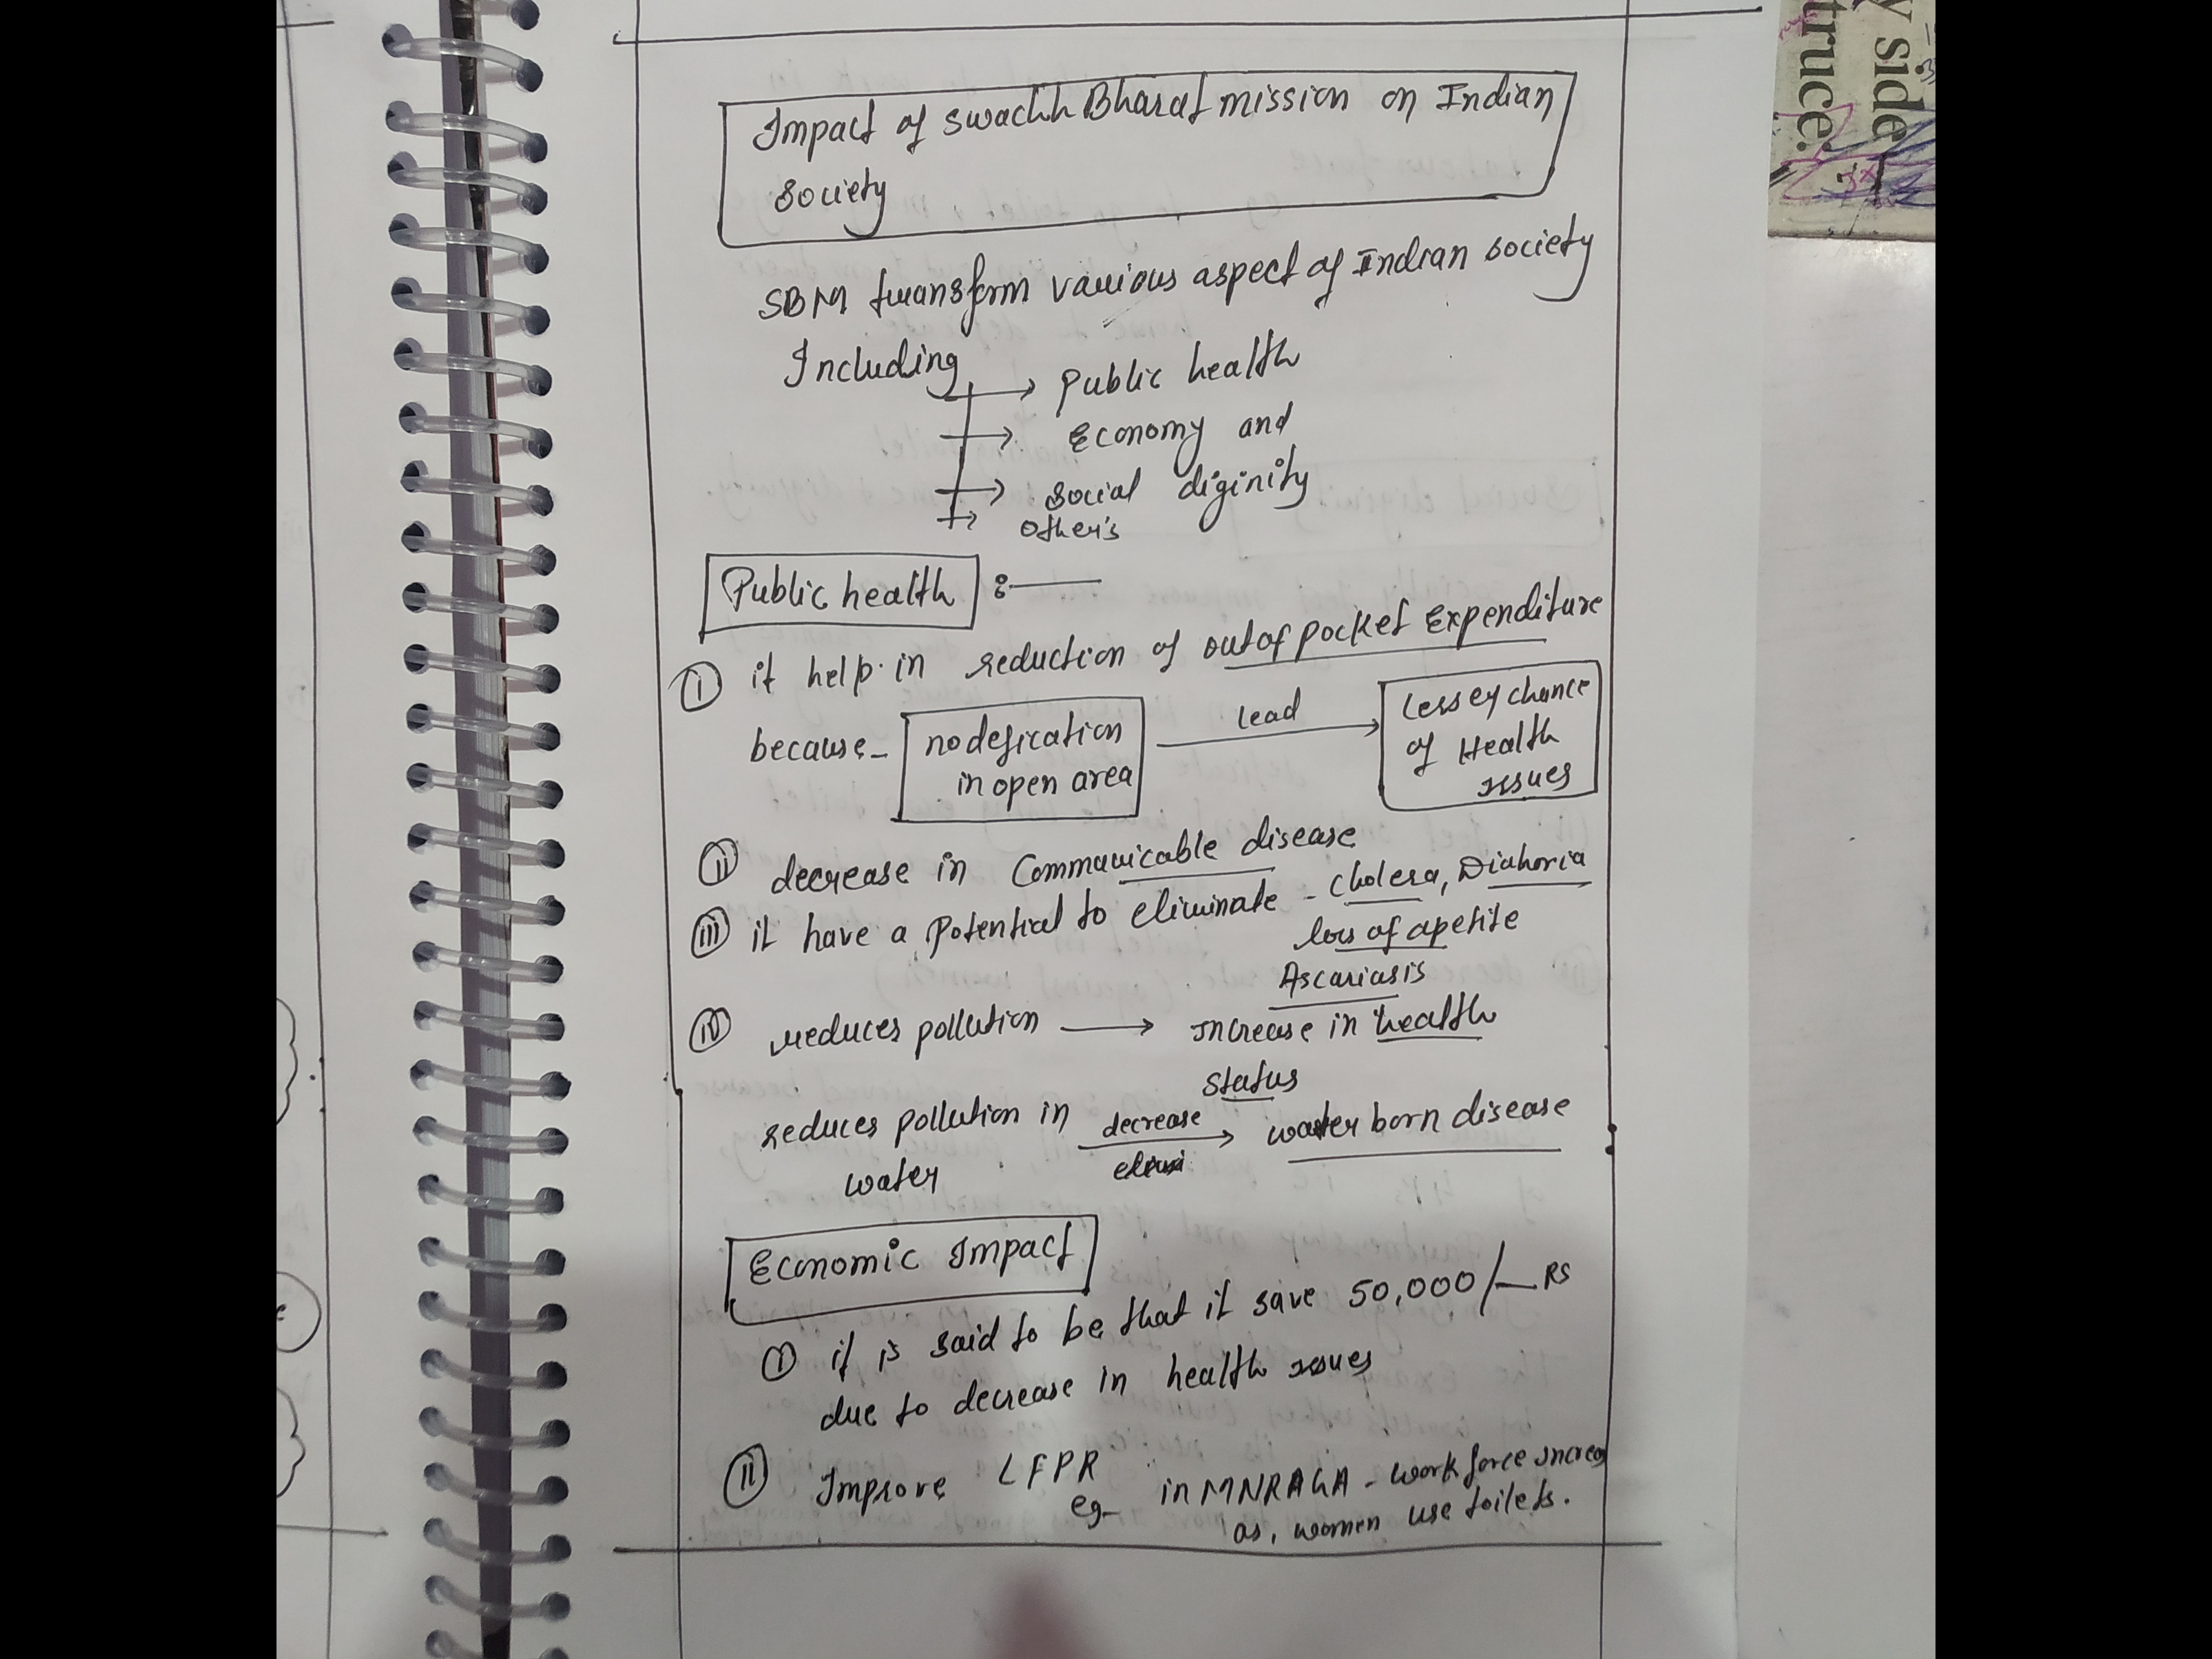 y side
truce.
Impact of swachh Bharat mission on Indian
Society
SBM transform various aspect of Indian society
Including
Public health
Economy and
Social diginity
other's
Public health :—
(i) it help in reduction of out of pocket Expenditure
because - no defication in open area lead Lesser chance of Health issues
(ii) decrease in Communicable disease
(iii) it have a Potential to eliminate - cholera, Diahoria
loss of apetite
Ascariasis
(iv) reduces pollution → increase in health
status
reduces pollution in water decrease → water born disease
Economic Impact
(i) it is said to be that it save 50,000/— RS
due to decrease in health issues
(ii) Improve LFPR
eg- in MNRAGA - work force increa
as, women use toilets.